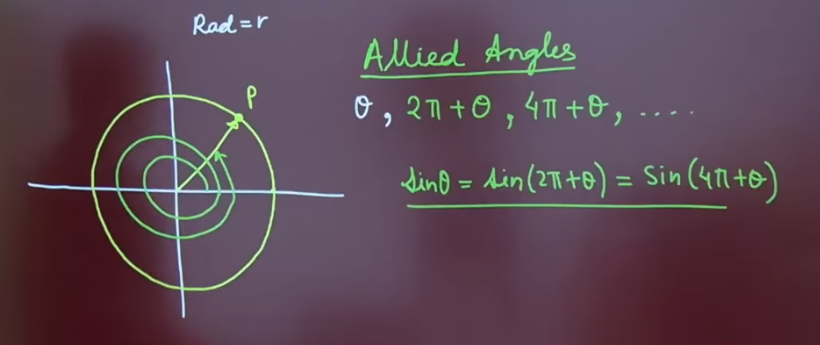 Rad = r
P
Allied Angles
θ, 2π+θ, 4π+θ, ....
sinθ = sin(2π+θ) = sin(4π+θ)